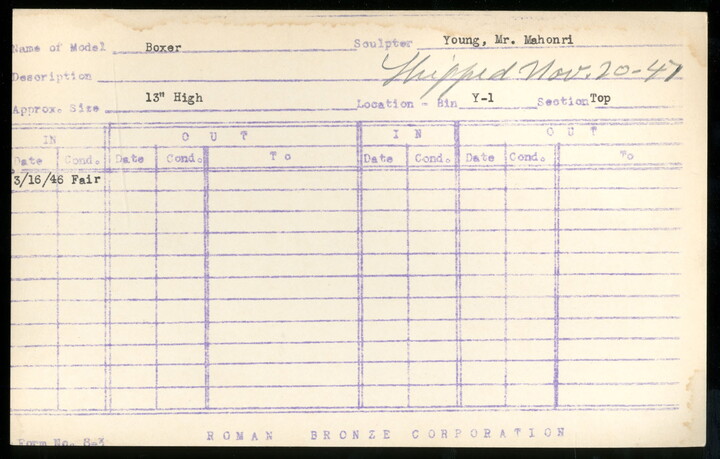 Name of Model Boxer Sculpter Young, Mr. Mahonri
Description Shipped Nov. 20-47
Approx. Size 13" High Location - Bin Y-1 Section Top
IN OUT IN OUT
Date Cond. Date Cond. To Date Cond. Date Cond. To
3/16/46 Fair
Form No. S-3 ROMAN BRONZE CORPORATION